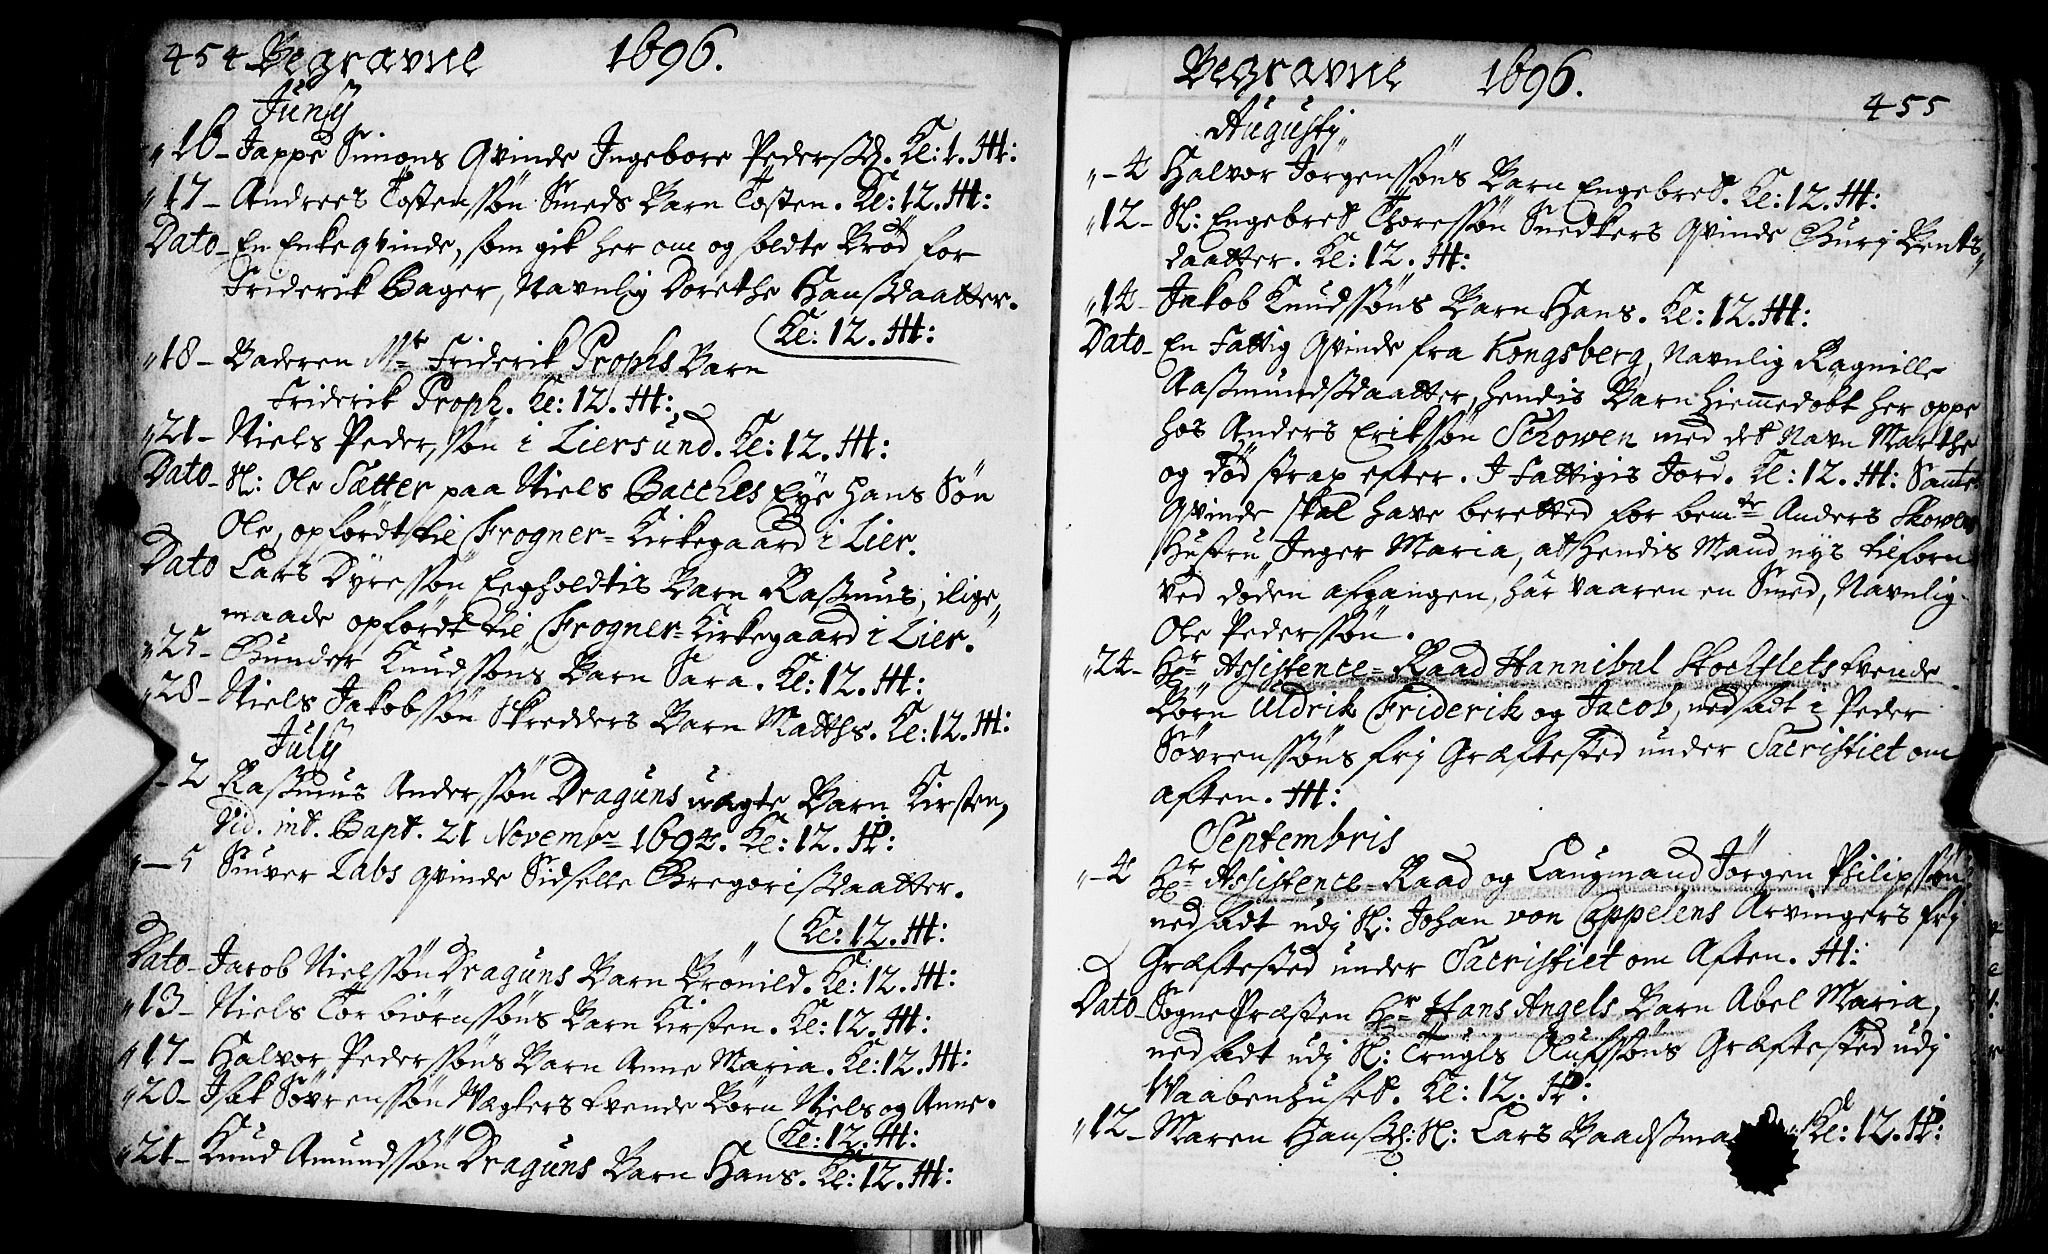 454 Begravne 1696.
Junij
„16 – Jappe Simons Qvinde Ingebore Pederßd. Kl: 1. H:
„17 – Andrees Tostenssøn Smeds Barn Tosten. Kl: 12. H:
Dato – En Enkeqvinde, som gik her om og soldte Brød for
Friderik Bager, Navnlig Dorethe Hanßdaatter.
(Kl: 12. H:
„18 – Baderen Mr Friderik Prophs Barn
Friderik Proph. Kl: 12. H:
„21 – Niels Pederssøn i Liersund. Kl: 12. H:
Dato – Sl: Ole Sætter paa Niels Bacches Eye hans Søn
Ole, opfördt til Frogner=Kirkegaard i Lier.
Dato Lars Dyressøn Eegholdtis Barn Raßmus, ilige
maade opfördt til Frogner=Kirkegaard i Lier.
„25 – Gunder Knudssøns Barn Sara. Kl: 12. H:
„28 – Niels Jakobssøn Skredders Barn Matths. Kl: 12. H:
July
– 2 Raßmus Anderssøn Draguns uægte Barn Kirsten,
Vid. int. Bapt. 21 Novembr 1694. Kl: 12. H:
„ – 5 Siuver Labs qvinde Sidselle Gregorißdaatter.
(Kl: 12. H:
Dato – Jacob Nielssøn Draguns Barn Brönild. Kl: 12. H:
„13 – Niels Torbiørnssøns Barn Kirsten. Kl: 12. H:
„17 – Halvor Pederssøns Barn Anne Maria. Kl: 12. H:
„20 – Isak Søvrenssøn Wægters tvende Børn Niels og Anne.
(Kl: 12. H:
„21 – Knud Amundssøn Draguns Barn Hans. Kl: 12. H:
Begravne 1696. 455
Augustj
„ – 4 Halvor Jørgenssøns Barn Engebret. Kl: 12. H:
„12 – Sl: Engebret Thoressøn Snedkers Qvinde Gurj Bents
daatter. Kl: 12. H:
„14 – Jakob Knudssøns Barn Hans. Kl: 12. H:
Dato – En Fattig Qvinde fra Kongsberg, Navnlig Ragnille
Aaßmundsdaatter, hendis Barn hiemmedøbt her oppe
hos Anders Erikssøn Schowen med det Navn Marthe
og död strax efter. I Fattigis Jord. Kl: 12. H: Samte
Qvinde skal have beretted for bemte Anders Skowens
Hustru, Inger Maria, at hendis Mand nys tilforn
ved döden afgangen, har vaaren en Smed, Navnlig
Ole Pederssøn.
„24 – Hr Assistence=Raad Hannibal Stoelflets tvende
Börn Uldrik Friderik og Jacob, nedsadt i Peder
Søvrenssøns frj Græftested under Sacristiet om
aften. H:
Septembris
„ – 4 Hr Assistence=Raad og Laugmand Jörgen Philipssøn,
nedsadt udj Sl: Johan von Cappelens Arvingers frj
Græftested under Sacristiet om Aften. H:
Dato – SognePræsten Hr Hans Angels Barn Abel Maria,
nedsadt udj Sl: Trugls Olufssøns Græftested udj
Waabenhuset. Kl: 12. H:
„12 – Maren Hanßd: Sl: Lars Baadsma Kl: 12. H: